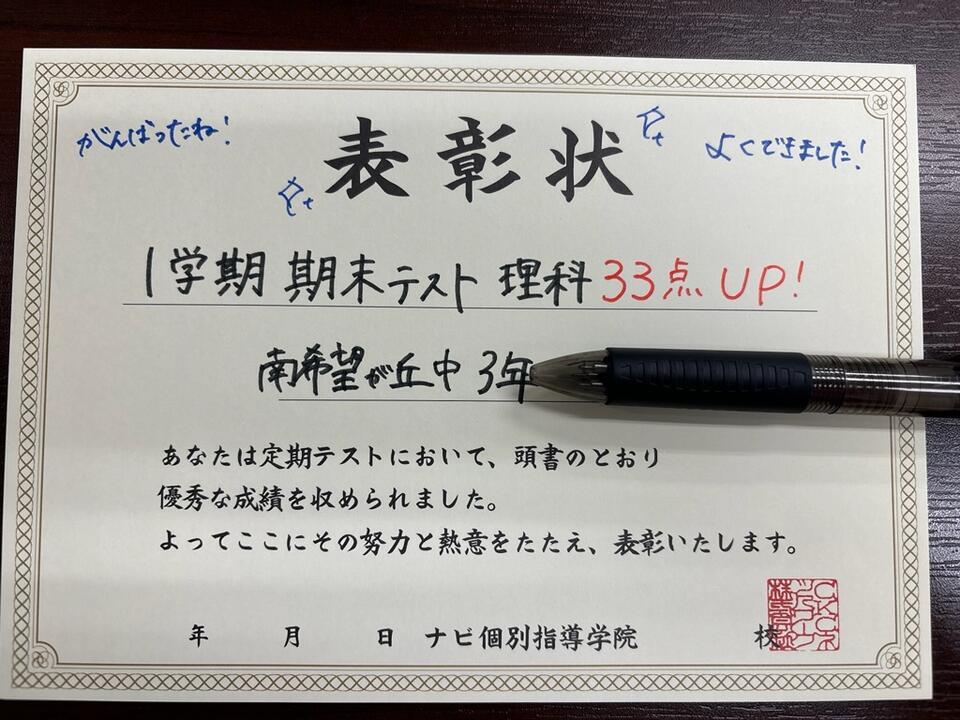 がんばったね！
表彰状
よくできました！
1学期 期末テスト 理科 33点 UP！
南希望が丘中 3年
あなたは定期テストにおいて、頭書のとおり
優秀な成績を収められました。
よってここにその努力と熱意をたたえ、表彰いたします。
年 月 日 ナビ個別指導学院 校